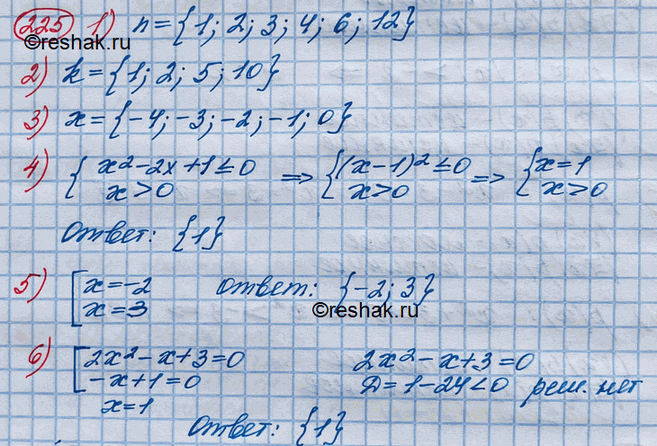 225 1) n={1; 2; 3; 4; 6; 12}
©reshak.ru
2) k={1; 2; 5; 10}
3) x={-4; -3; -2; -1; 0}
4) { x²-2x+1≤0 => { (x-1)²≤0 => { x=1
x>0 x>0 x>0
Ответ: {1}
5) [ x=-2 Ответ: {-2; 3}
x=3
©reshak.ru
6) [ 2x²-x+3=0 2x²-x+3=0
-x+1=0 Д=1-24<0 реш. нет
x=1
Ответ: {1}